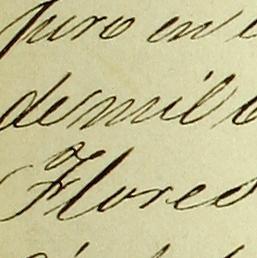 Juro en
de mil
Flores